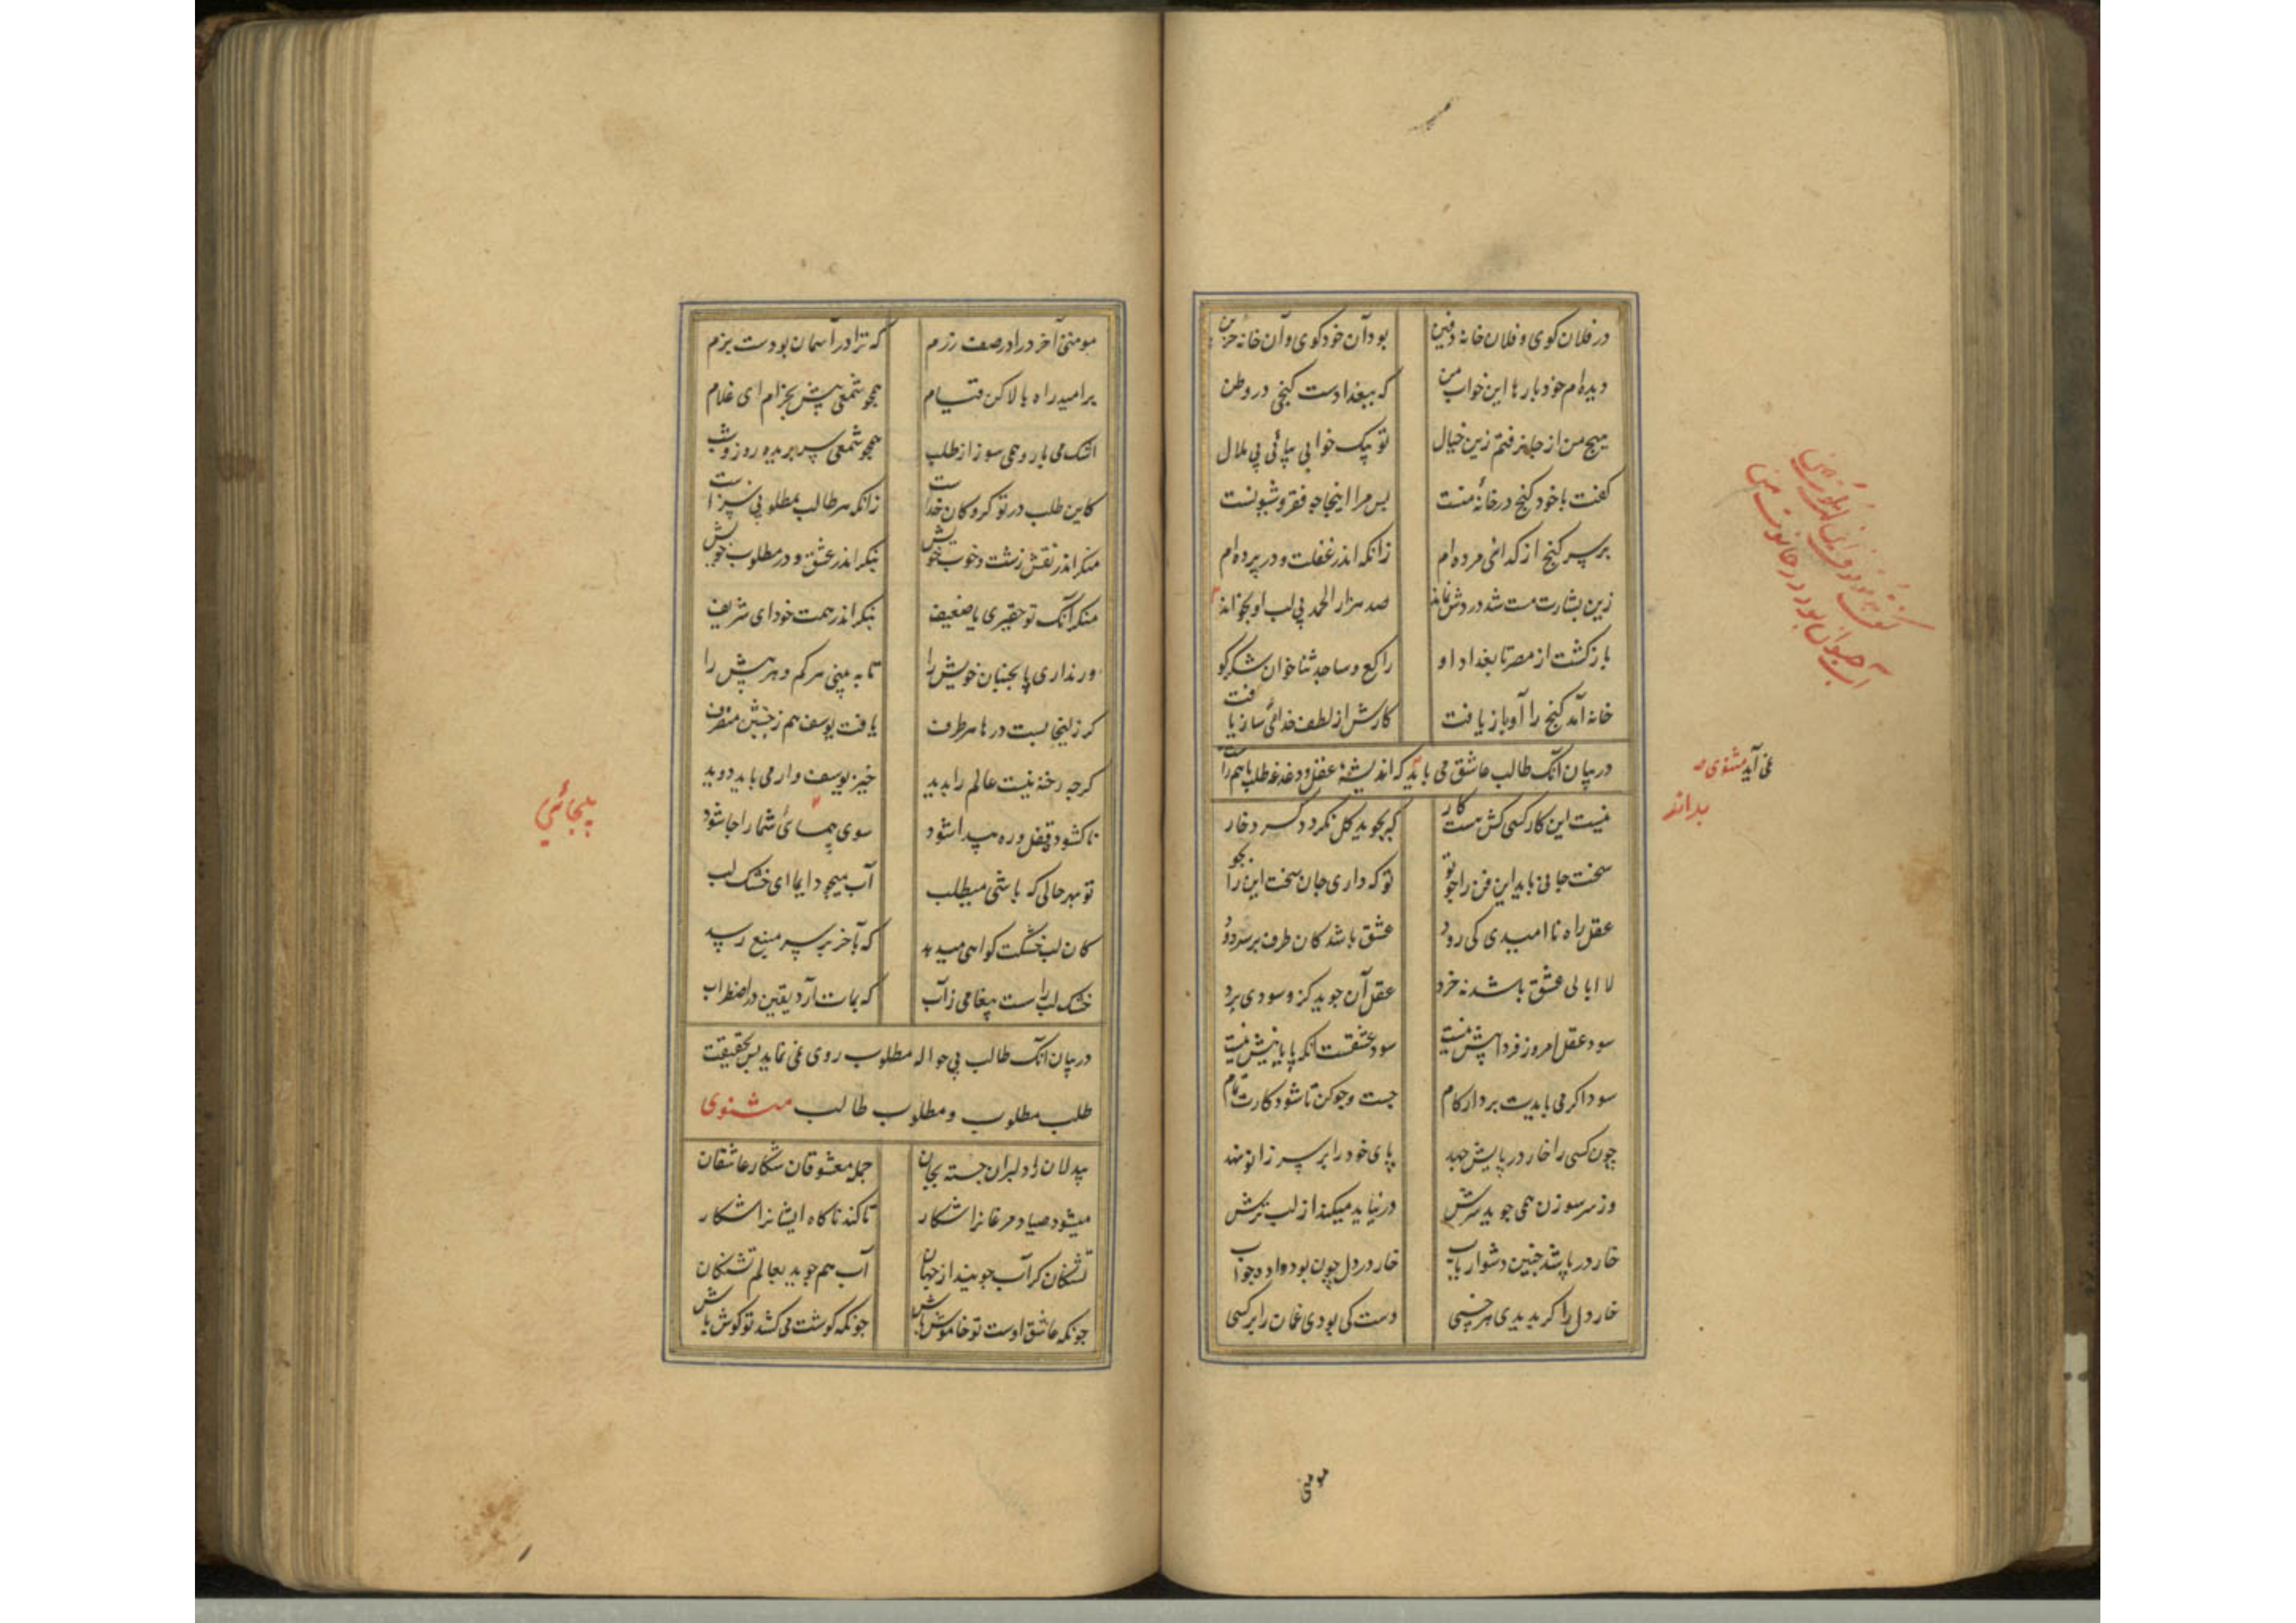 در فلان کوی و فلان خانه دفین بود آن خود کوی و آن خانه حزین
دیده‌ام خود بارها این خواب من که ببغدادست کنجی در وطن
هیچ من از جا نرفتم زین خیال تو بیک خوابی بیائی بی ملال
کفت با خود کنج در خانه منست بس مرا اینجا چه فقر و شیونست
بر سر کنج از کدائی مرده‌ام زانکه اندر غفلت و در پرده‌ام
زین بشارت مست شد دردش نماند صد هزار الحمد بی لب او بخواند
باز کشت از مصر تا بغداد او راکع و ساجد ثنا خوان شکر کو
خانه آمد کنج را او باز یافت کارش از لطف خدائی ساز یافت
در بیان آنک طالب عاشق می باید که اندیشهٔ عقل و دغدغه طلب باهم راست
نمی آید مثنوی
بداند
کفت
آب حیوان بود در حانوت من
نیست این کار کسی کش هست کار کر بجوید کل نکردد کرد خار
سخت جانی باید این فن را چو تو تو که داری جان سخت این را بجو
عقل راه ناامیدی کی رود عشق باشد کان طرف بر سر دود
لاابالی عشق باشد نه خرد عقل آن جوید کزو سودی برد
سود عقل امروز فردا پیش نیست سود عشقست آنکه پایانیش نیست
سود اکر می بایدت بردار کام جست و جو کن تا شود کارت تمام
چون کسی را خار در پایش جهد پای خود را بر سر زانو نهد
وز سر سوزن همی جوید سرش ور نیابد میکند از لب ترش
خار در پا شد چنین دشوار یاب خار در دل چون بود واده جواب
خار دل را کر بدیدی هر خسی دست کی بودی غمان را بر کسی
مومنی
مومنی آخر درآ در صف رزم که ترا در آسمان بودست بزم
بر امید راه بالا کن قیام همچو شمعی پیش محراب ای غلام
اشک می بار و همی سوز از طلب همچو شمعی سر بریده روز و شب
کاین طلب در تو کروکان خداست زانکه هر طالب بمطلوبی سزاست
منکر اندر نقش زشت و خوب خویش بنکر اندر عشق و در مطلوب خویش
منکر آنک تو حقیری یا ضعیف بنکر اندر همت خود ای شریف
ور نداری پا بجنبان خویش را تا به بینی هر کم و هر بیش را
کر زلیخا بست درها هر طرف یافت یوسف هم ز جنبش منصرف
کرچه رخنه نیست عالم را بدید خیره یوسف وار می باید دوید
تا کشود قفل و ره پیدا شود سوی بیجائی شما را جا شود
بیجائی
تو بهر حالی که باشی میطلب آب میجو دایما ای خشک لب
کان لب خشکت کواهی میدهد که بآخر بر سر منبع رسد
خشک لب را هست پیغامی ز آب که بمات آرد یقین در اضطراب
در بیان آنک طالب بی حواله مطلوب روی نمی نماید بس بحقیقت
طلب مطلوب و مطلوب طالب مثنوی
بیدلان را دلبران جسته بجان جمله معشوقان شکار عاشقان
میشود صیاد مرغانرا شکار تا کند ناکاه ایشانرا شکار
تشنکان کر آب جویند از جهان آب هم جوید بعالم تشنکان
چونکه عاشق اوست تو خاموش باش چونکه کوشت می کشد تو کوش باش